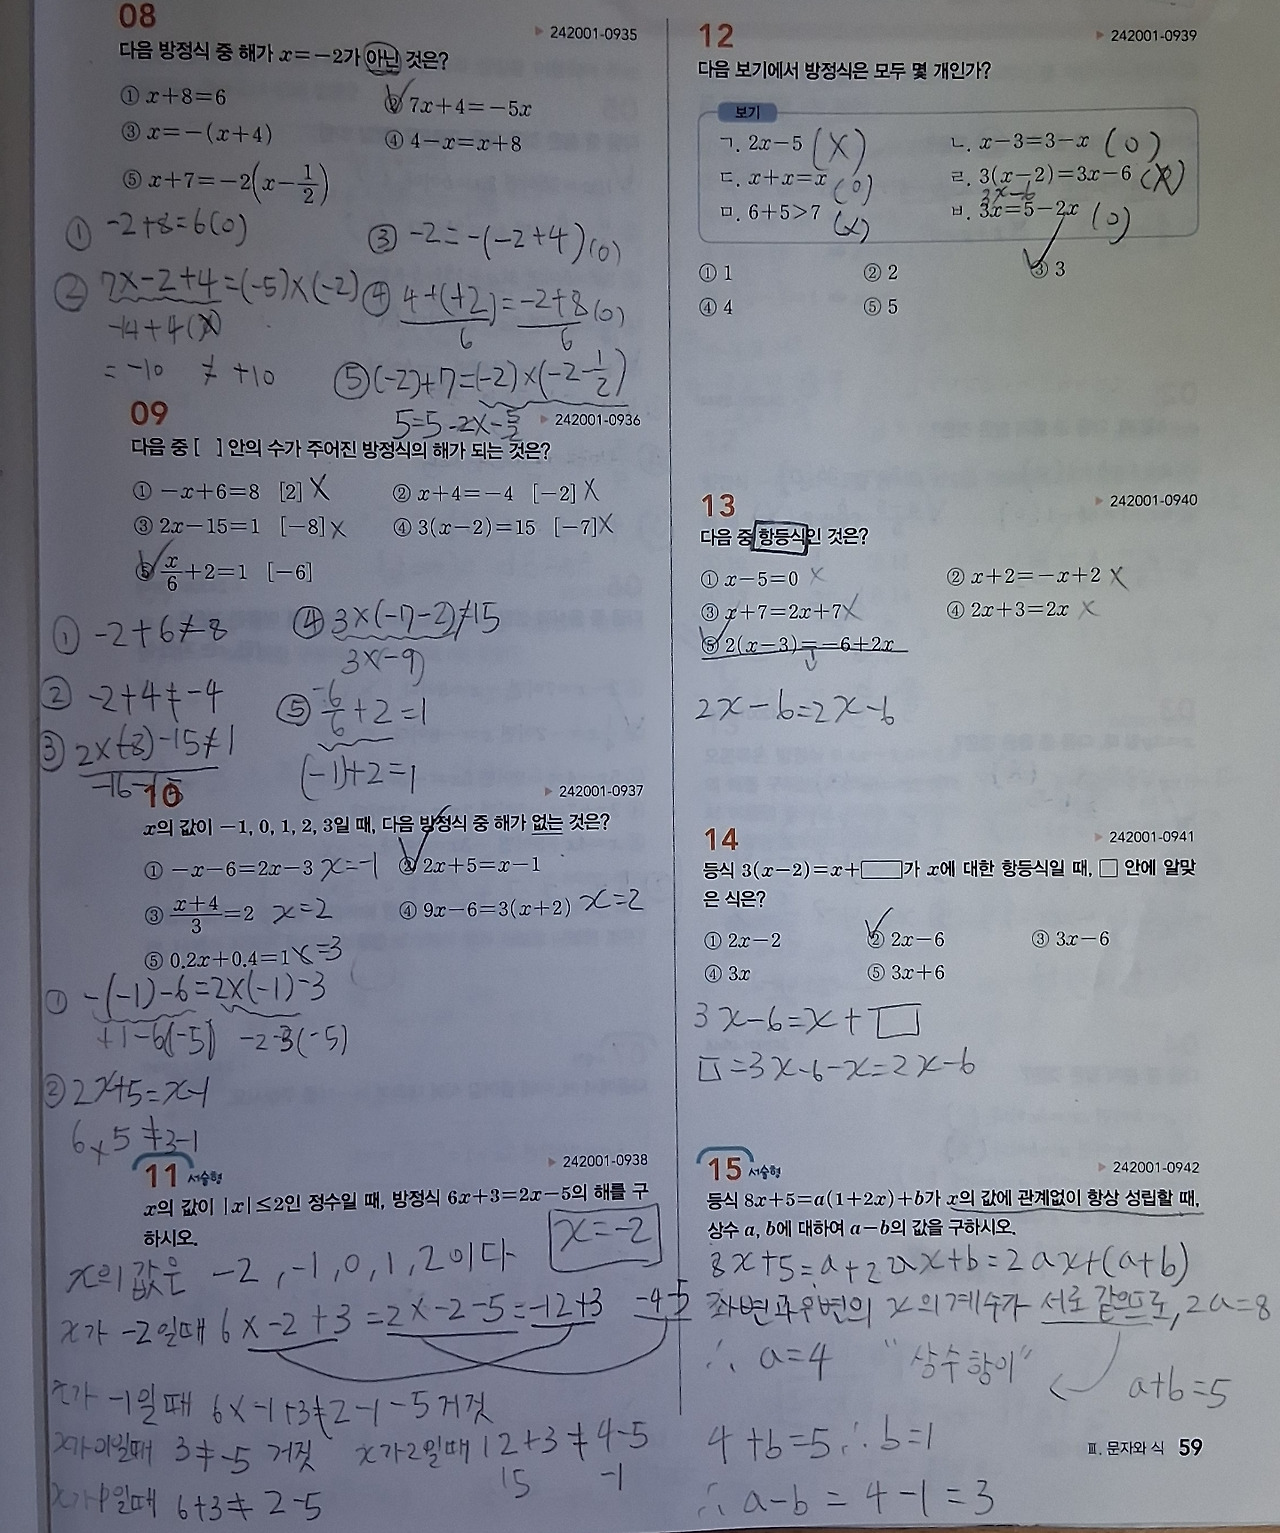 08
▶ 242001-0935
다음 방정식 중 해가 x=-2가 아닌 것은?
① x+8=6 ② 7x+4=-5x
③ x=-(x+4) ④ 4-x=x+8
⑤ x+7=-2(x-1/2)
① -2+8=6(0) ③ -2=-(-2+4)(0)
② 7x-2+4=(-5)x(-2) ④ 4+(+2)=-2+8(0)
-14+4(X) 6 6
=-10 ≠ +10 ⑤ (-2)+7=(-2)×(-2-1/2)
09
▶ 242001-0936
다음 중 [ ] 안의 수가 주어진 방정식의 해가 되는 것은?
① -x+6=8 [2] X ② x+4=-4 [-2] X
③ 2x-15=1 [-8] X ④ 3(x-2)=15 [-7] X
⑤ x/6+2=1 [-6]
① -2+6≠8 ④ 3×(-7-2)≠15
3×(-9)
② -2+4≠-4 ⑤ -6/6+2=1
③ 2×(-8)-15≠1
(-1)+2=1
10
▶ 242001-0937
x의 값이 -1, 0, 1, 2, 3일 때, 다음 방정식 중 해가 없는 것은?
① -x-6=2x-3 x=-1 ② 2x+5=x-1
③ x+4/3=2 x=2 ④ 9x-6=3(x+2) x=2
⑤ 0.2x+0.4=1 x=3
① -(-1)-6=2×(-1)-3
+1-6(-5) -2-3(-5)
② 2x+5=x-1
6+5≠3-1
11 서술형
▶ 242001-0938
x의 값이 |x|≤2인 정수일 때, 방정식 6x+3=2x-5의 해를 구
하시오.
x=-2
x의 값은 -2, -1, 0, 1, 2이다
x가 -2일때 6×-2+3=2×-2-5=-12+3 -4-5
x가 -1일때 6×-1+3≠2-1-5 거짓
x가 0일때 3≠-5 거짓 x가 2일때 12+3≠4-5
15 -1
x가 1일때 6+3≠2-5
12
▶ 242001-0939
다음 보기에서 방정식은 모두 몇 개인가?
보기
ㄱ. 2x-5 (X) ㄴ. x-3=3-x (0)
ㄷ. x+x=x (0) ㄹ. 3(x-2)=3x-6 (X)
3x-6
ㅁ. 6+5>7 (X) ㅂ. 3x=5-2x (0)
① 1 ② 2 ③ 3
④ 4 ⑤ 5
13
▶ 242001-0940
다음 중 항등식인 것은?
① x-5=0 X ② x+2=-x+2 X
③ x+7=2x+7 X ④ 2x+3=2x X
⑤ 2(x-3)=-6+2x
2x-6=2x-6
14
▶ 242001-0941
등식 3(x-2)=x+□가 x에 대한 항등식일 때, □ 안에 알맞
은 식은?
① 2x-2 ② 2x-6 ③ 3x-6
④ 3x ⑤ 3x+6
3x-6=x+□
□=3x-6-x=2x-6
15 서술형
▶ 242001-0942
등식 8x+5=a(1+2x)+b가 x의 값에 관계없이 항상 성립할 때,
상수 a, b에 대하여 a-b의 값을 구하시오.
8x+5=a+2ax+b=2ax+(a+b)
좌변과 우변의 x의 계수가 서로 같으므로, 2a=8
∴ a=4 "상수항이"
a+b=5
4+b=5 ∴ b=1
∴ a-b=4-1=3
Ⅲ. 문자와 식 59